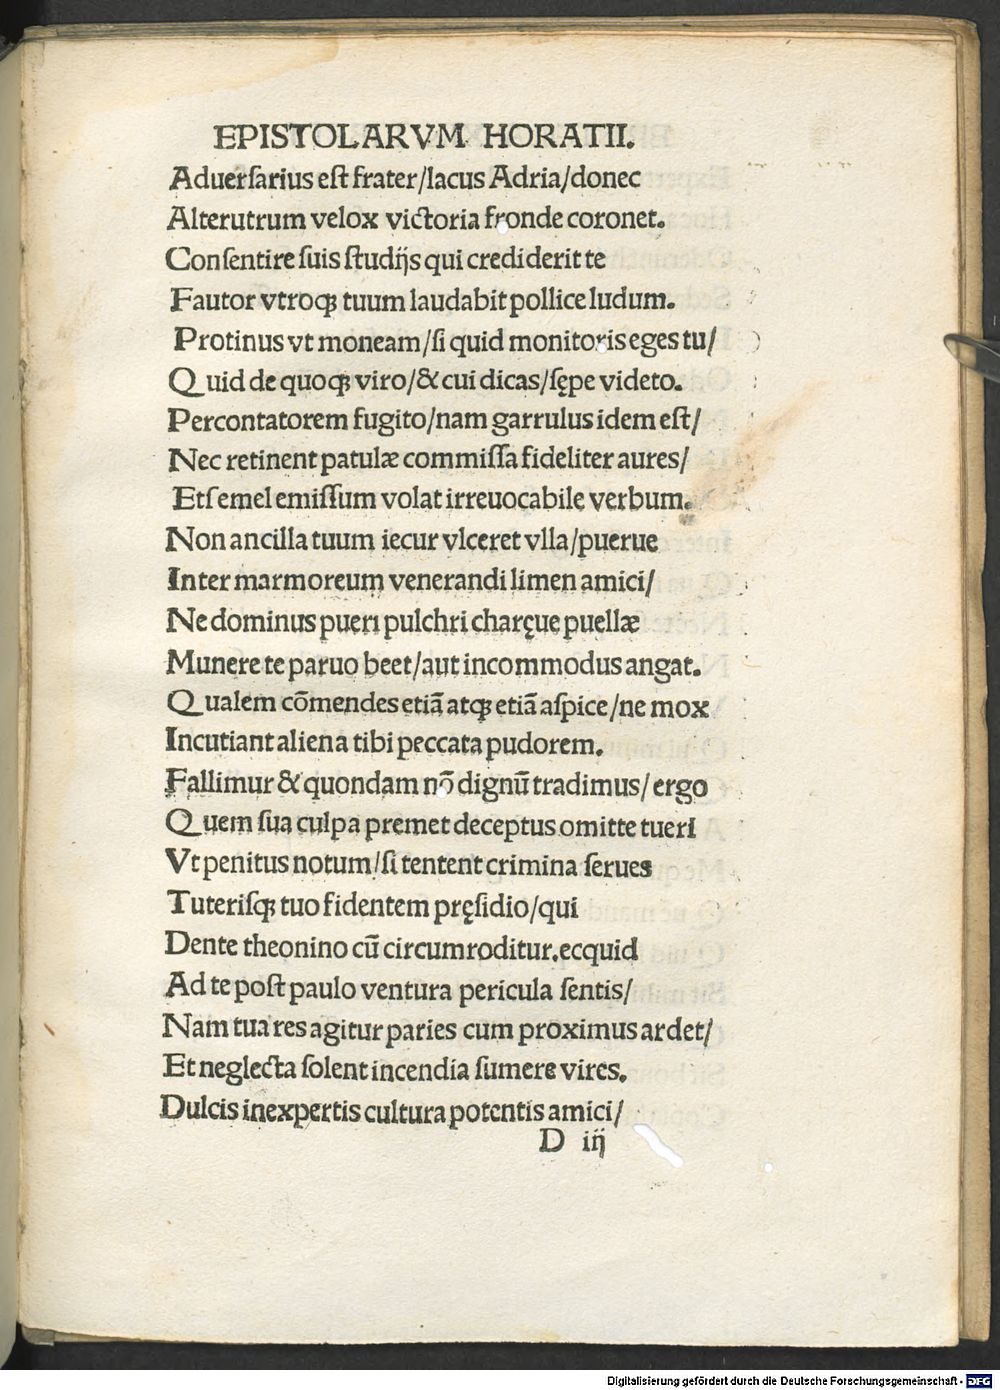 EPISTOLARVM HORATII.
Aduerſarius eſt frater/lacus Adria/donec
Alterutrum velox victoria fronde coronet.
Conſentire ſuis ſtudijs qui crediderit te
Fautor vtroqꝫ tuum laudabit pollice ludum.
Protinus vt moneam/ſi quid monitoris eges tu/
Quid de quoqꝫ viro/& cui dicas/ſępe videto.
Percontatorem fugito/nam garrulus idem eſt/
Nec retinent patulæ commiſſa fideliter aures/
Et ſemel emiſſum volat irreuocabile verbum.
Non ancilla tuum iecur vlceret vlla/puerue
Inter marmoreum venerandi limen amici/
Ne dominus pueri pulchri charęue puellæ
Munere te paruo beet/aut incommodus angat.
Qualem cōmendes etiā atqꝫ etiā aſpice/ne mox
Incutiant aliena tibi peccata pudorem.
Fallimur & quondam nō dignū tradimus/ergo
Quem ſua culpa premet deceptus omitte tueri
Vt penitus notum/ſi tentent crimina ſerues
Tuteriſqꝫ tuo fidentem pręſidio/qui
Dente theonino cū circumroditur.ecquid
Ad te poſt paulo ventura pericula ſentis/
Nam tua res agitur paries cum proximus ardet/
Et neglecta ſolent incendia ſumere vires.
Dulcis inexpertis cultura potentis amici/
D iij
Digitalisierung gefördert durch die Deutsche Forschungsgemeinschaft - DFG